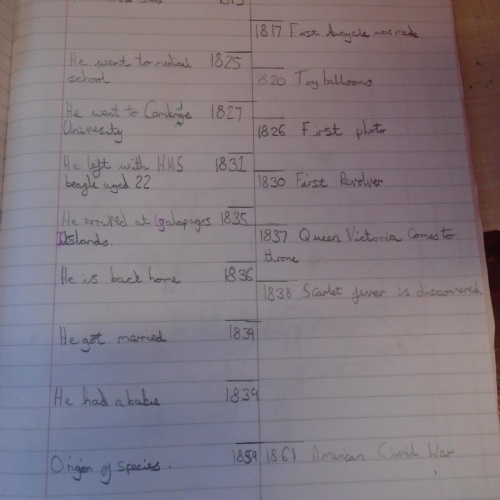 1817 First bicycle was made
He went to medical 1825
school
1820 Toy balloons
He went to 1827
University
1826 First photo
He left with HMS 1831
beagle aged 22
1830 First Revolver
He arrived at Galapages 1835
Islands.
1837 Queen Victoria Comes to
throne
He is back home 1836
1838 Scarlet fever is discovered
He got married 1839
He had a babie 1839
Origin of species. 1859
1861 American Civil War